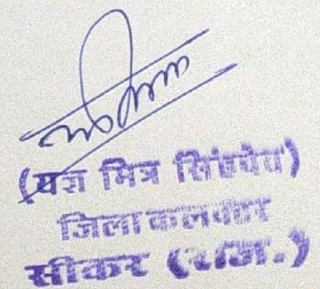 (यश मित्र सिंहदेव)
जिला कलक्टर
सीकर (राज.)